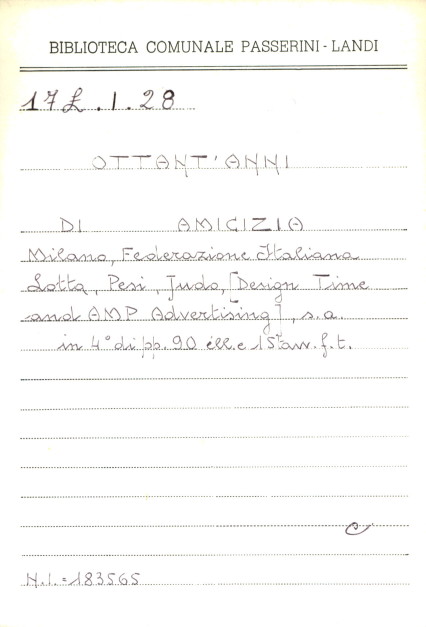 BIBLIOTECA COMUNALE PASSERINI - LANDI
17 L.I.28
OTTANT'ANNI
DI AMICIZIA
Milano, Federazione Italiana
Lotta, Pesi, Judo, [Design Time
and AMP Advertising], s.a.
in 4° di pp. 90 ill. e 15 tav. f.t.
N.I. = 183565